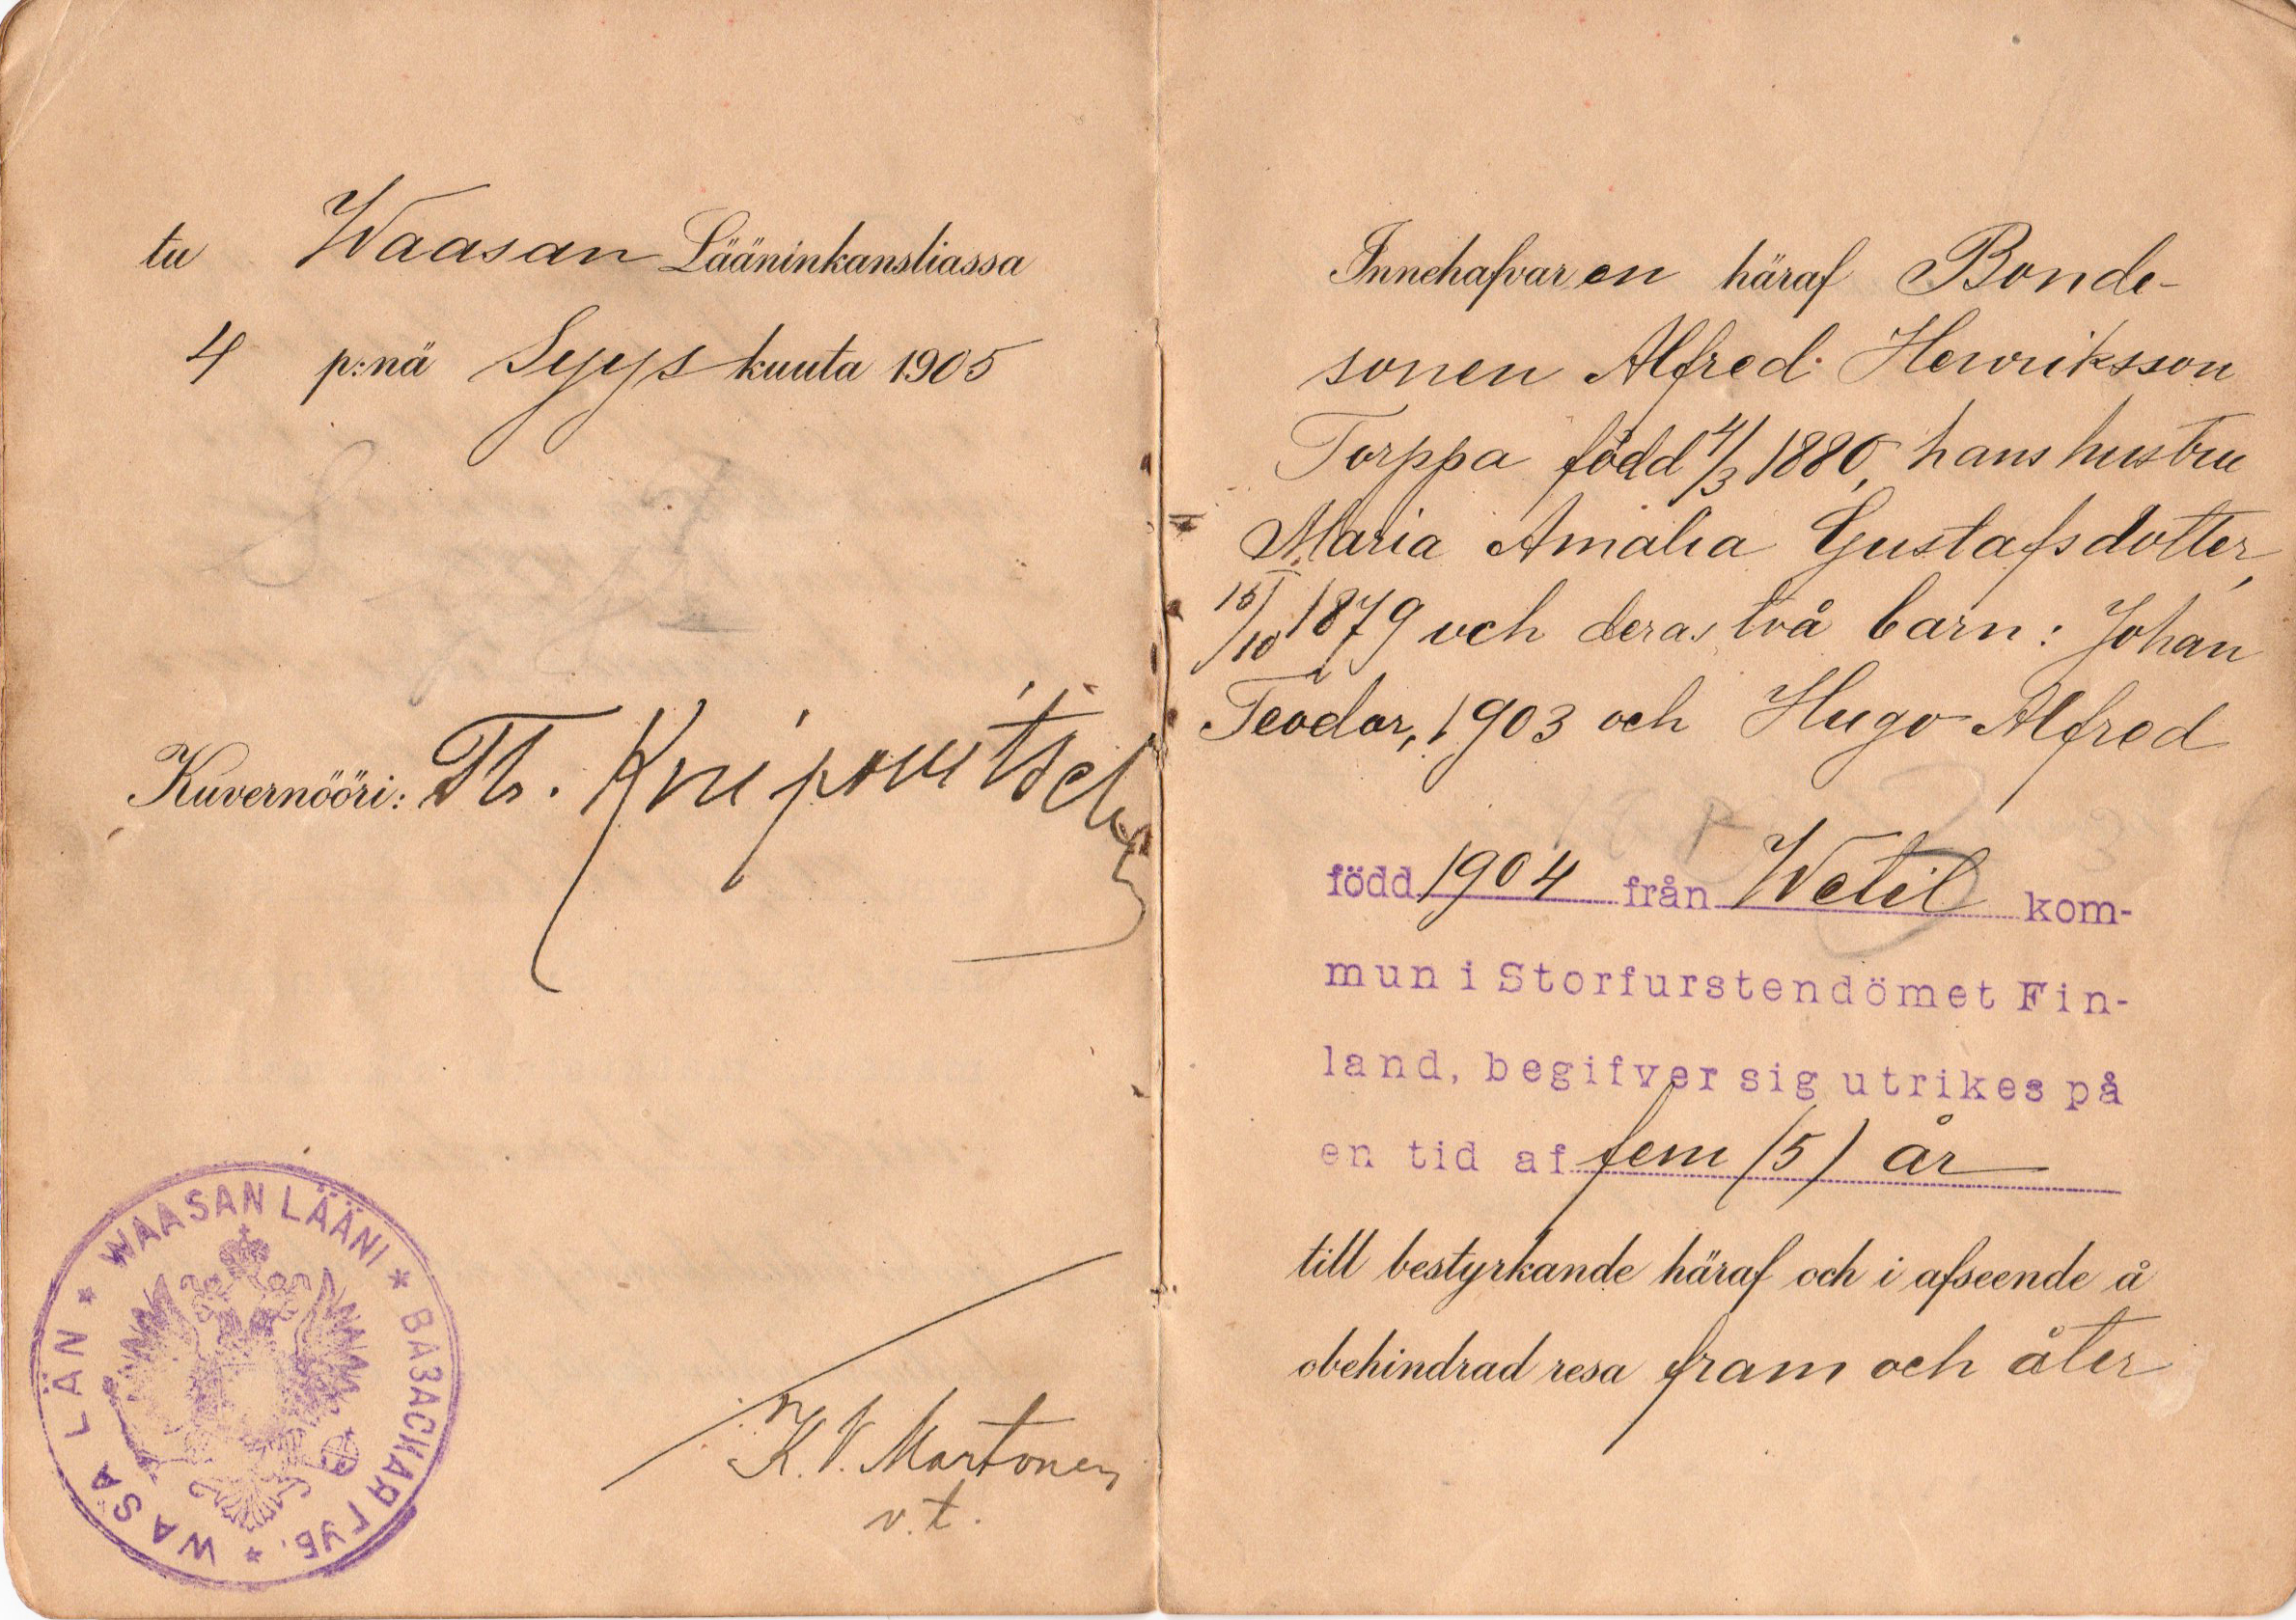 tu Waasan Lääninkansliassa
4 p:nä Syyskuuta 1905
Kuvernööri: Th. Knipowitsch
WAASAN LÄÄNI * ВАЗАСКАЯ ГУБ. * WASA LÄN *
K. V. Martonen
v.t.
Innehafvaren häraf Bonde-
sonen Alfred Henriksson
Torppa född 4/3 1880, hans hustru
Maria Amalia Gustafsdotter,
15/10 1879 och deras två barn: Johan
Teodor, 1903 och Hugo Alfred
född 1904 från Wetil kom-
mun i Storfurstendömet Fin-
land, begifver sig utrikes på
en tid af fem (5) år
till bestyrkande häraf och i afseende å
obehindrad resa fram och åter